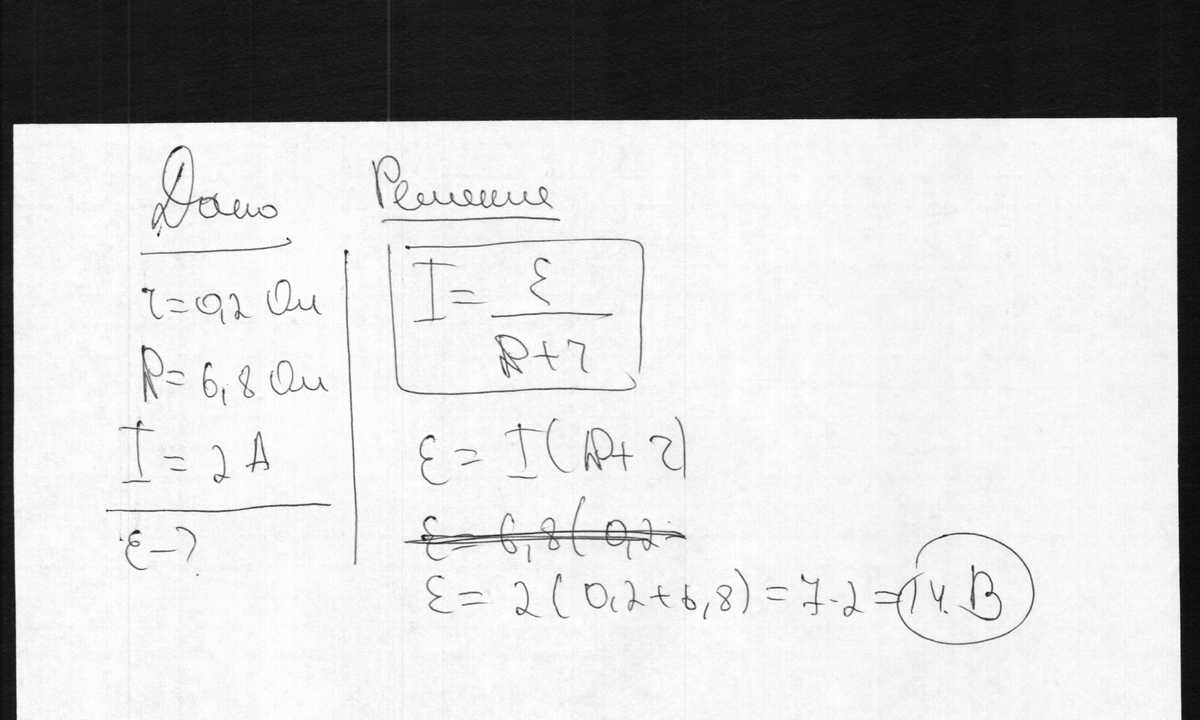 Дано
r=0,2 Ом
R=6,8 Ом
I=2 А
ε-?
Решение
I=ε/R+r
ε=I(R+r)
ε=6,8(0,2
ε=2(0,2+6,8)=7·2=14 В